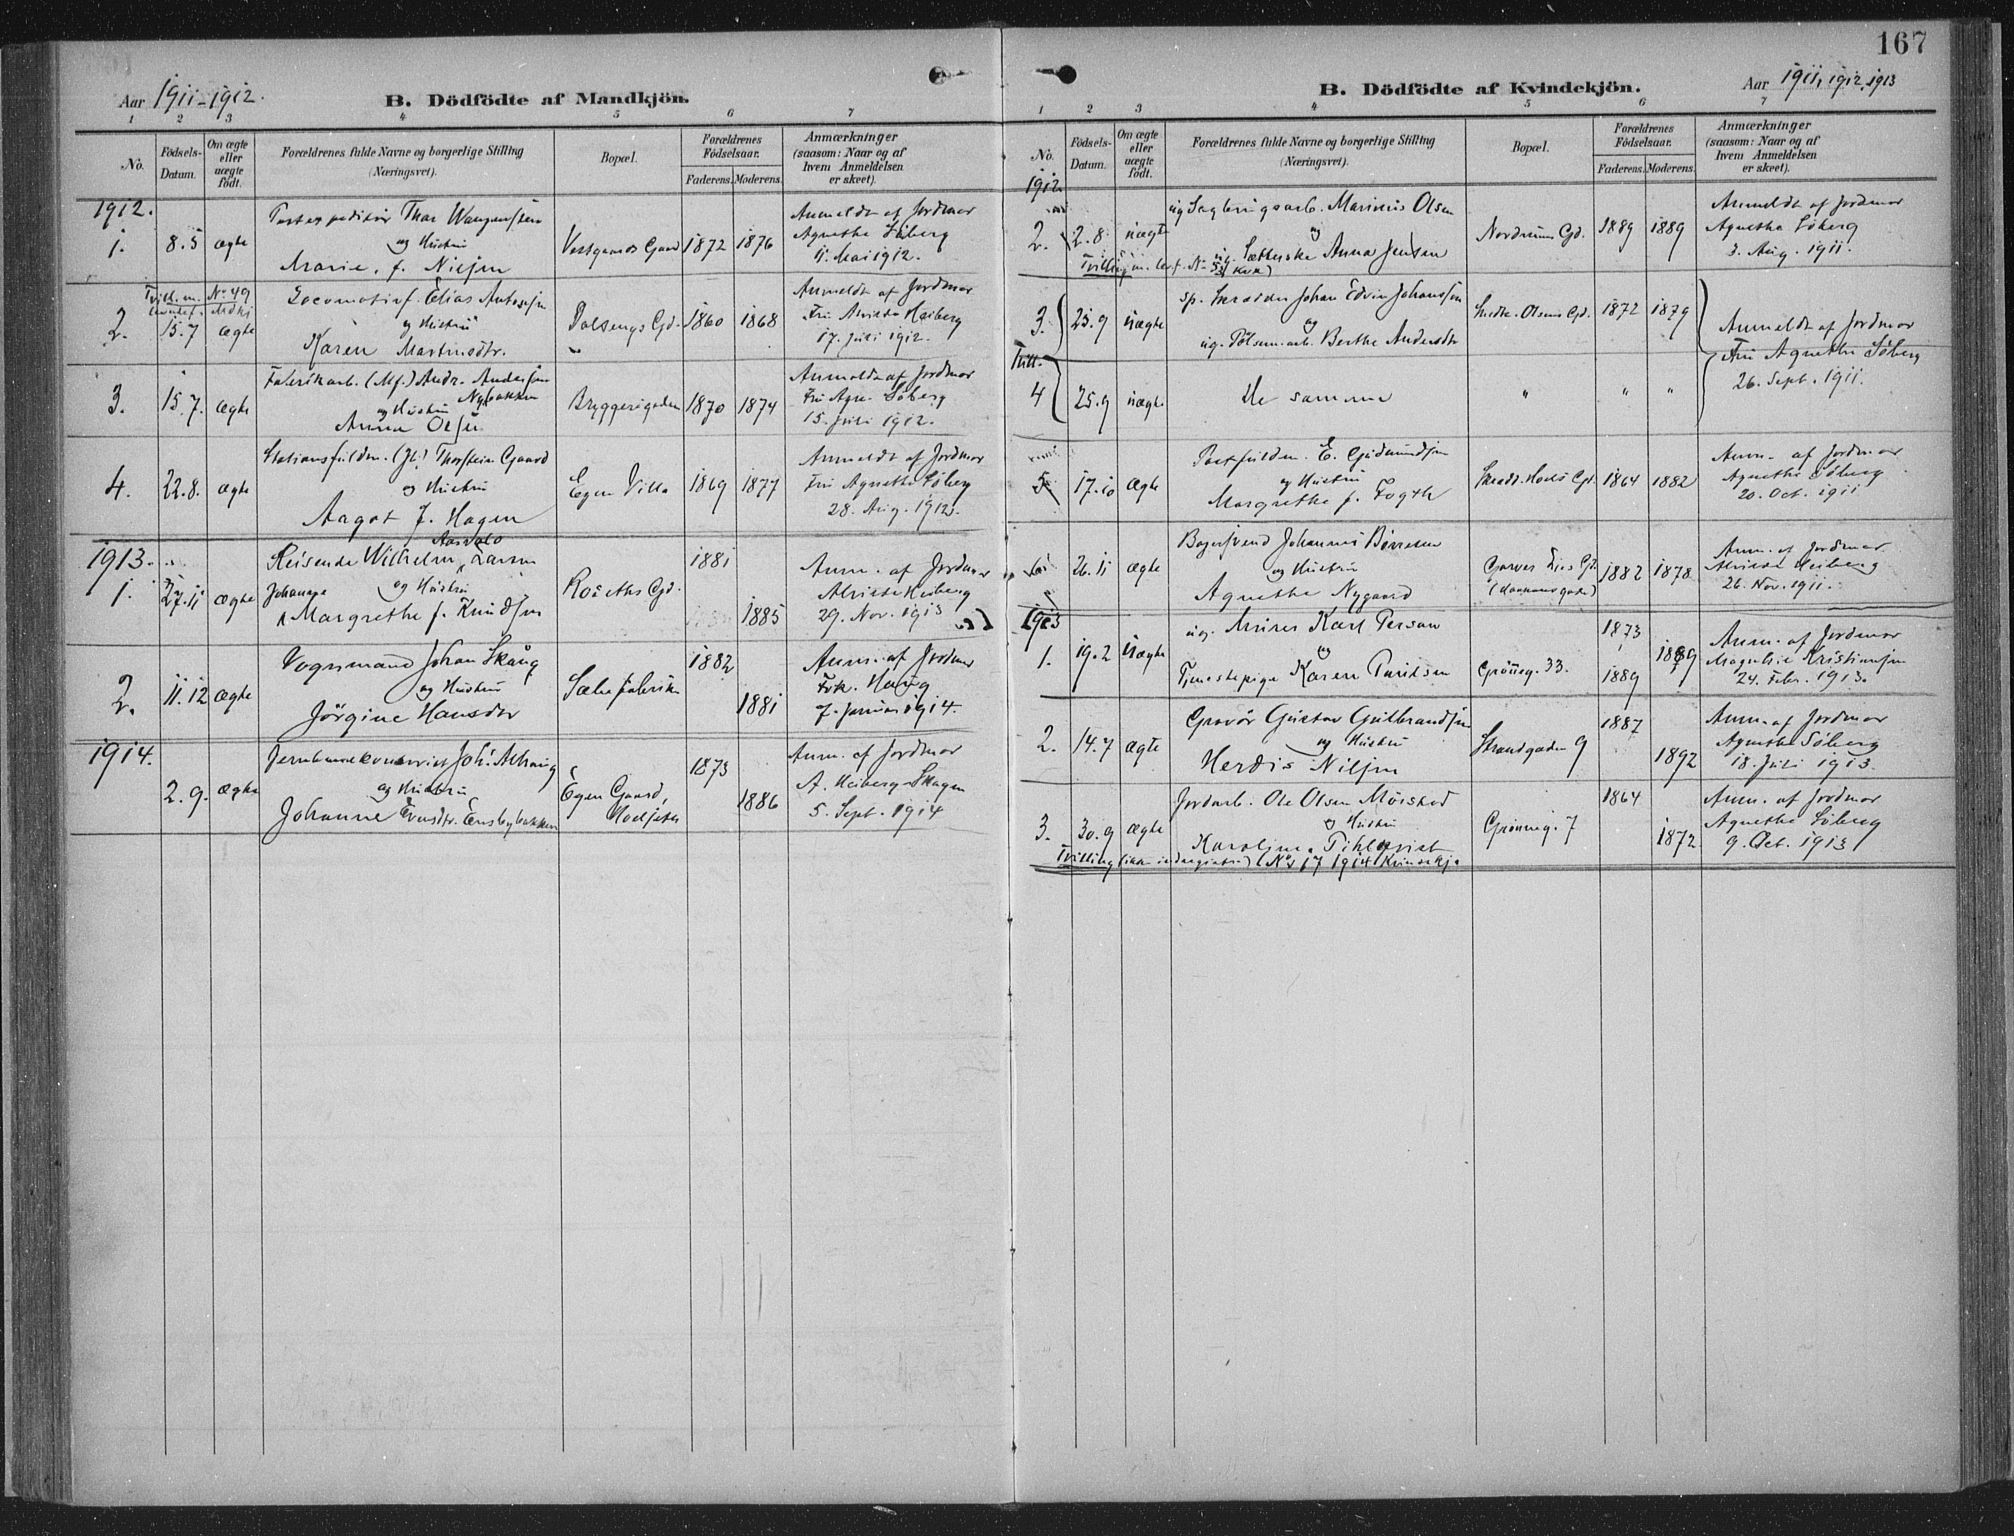 Aar 1911-1912.
B. Dödfödte af Mandkjön.
1 2 3 4 5 6 7
No. Födsels-Datum. Om ægte eller uægte födt. Forældrenes fulde Navne og borgerlige Stilling (Næringsvei). Bopæl. Forældrenes Födselsaar. Faderens. Moderens. Anmærkninger (saasom: Naar og af hvem Anmeldelsen er skeet).
1912.
1. 8.5 ægte Thor Wangensteen
og Hustru
Marie, f. Nielsen
Vestgaards Gaard 1872 1876
Anmeldt af Jordmor
Agnethe Söberg
11. Mai 1912.
No 49
2. 15.7 ægte Locomotivf. Elias Antonsen
og Hustru
Karen Martinsdtr.
Dolsengs Gd. 1860 1868
Anmeldt af Jordmor
Fru Alvilde Heiberg
17. Juli 1912.
3. 15.7. ægte Fabrikarb. (Mf.) Andr. Andersen
Nybakken
og Hustru
Anna Olsen
Bryggerigaden 1870 1874
Anmeldt af Jordmor
Fru Agn. Söberg
15. Juli 1912.
4. 22.8. ægte Stationsfuldm. Thorstein Gaard
og Hustru
Aagot f. Hagen
Egen Villa 1869 1877
Anmeldt af Jordmor
Fru Agnethe Söberg
28. Aug. 1912.
1913.
1. 27.11 ægte Reisende Wilhelm Larsen
og Hustru
Johanne
Margrethe f. Knudsen
Roseths Gd. 1881 1885
Anm. af Jordmor
Alvilde Heiberg
29. Nov. 1913
2. 11.12 ægte Vognmand Johan Skaug
og Hustru
Jörgine Hansdtr
Sæbefabriken 1882 1881
Anm. af Jordmor
Frk. Haug
7. Januar 1914.
1914.
2.9. ægte
og Hustru
Johanne Evensdtr. Ensbybakken
Egen Gaard, 1873 1886
Anm. af Jordmor
A. Heiberg-Skagen
5. Sept. 1914
167
Aar 1911, 1912, 1913
B. Dödfödte af Kvindekjön.
1 2 3 4 5 6 7
No. Födsels-Datum. Om ægte eller uægte födt. Forældrenes fulde Navne og borgerlige Stilling (Næringsvei). Bopæl. Forældrenes Födselsaar. Faderens. Moderens. Anmærkninger (saasom: Naar og af hvem Anmeldelsen er skeet).
1912
2. 2.8. uægte ug. Marinius Olsen
og
Anna Jensen
Nordrums Gd. 1889 1889
Anmeldt af Jordmor
Agnethe Söberg
3. Aug. 1911.
3. 25.9 uægte Johan Edvin Johanssen
og
ug. Pölsem.arb. Berthe Andersdtr
Olsens Gd. 1872 1879
Anmeldt af Jordmor
Fru Agnethe Söberg
26. Sept. 1911.
Tvill.
4 25.9 uægte De samme " " "
5 17.10 ægte Postfuldm. E. Gudmundsen
og Hustru
Margrethe f. Fogth
Gd. 1864 1882
Anm. af Jordmor
Agnethe Söberg
20. Oct. 1911
6 26.11 ægte Bagersvend Johannes Börresen
og Hustru
Agnethe Nygaard
Garver Lies Gd. 1882 1878
Anm. af Jordmor
Alvilde Heiberg
26. Nov. 1911.
1913
1. 19.2 uægte ug. Murer Karl Person
og
Tjenestepige Karen
Grönneg. 33. 1873 1889 1889
Anm. af Jordmor
Kristiansen
24. Febr. 1913.
2. 14.7 ægte Gravör Gustav Gulbrandsen
og Hustru
Herdis Nilsen
Strandgaden 9 1887 1892
Anm. af Jordmor
Agnethe Söberg
18. Juli 1913.
3. 30.9 ægte Jordarb. Ole Olsen Mörstad
og Hustru
Karoline Pihlqvist
Grönneg. 7 1864 1872
Anm. af Jordmor
Agnethe Söberg
9. Oct. 1913
Tvilling (No 17 1914 Kvindekj.